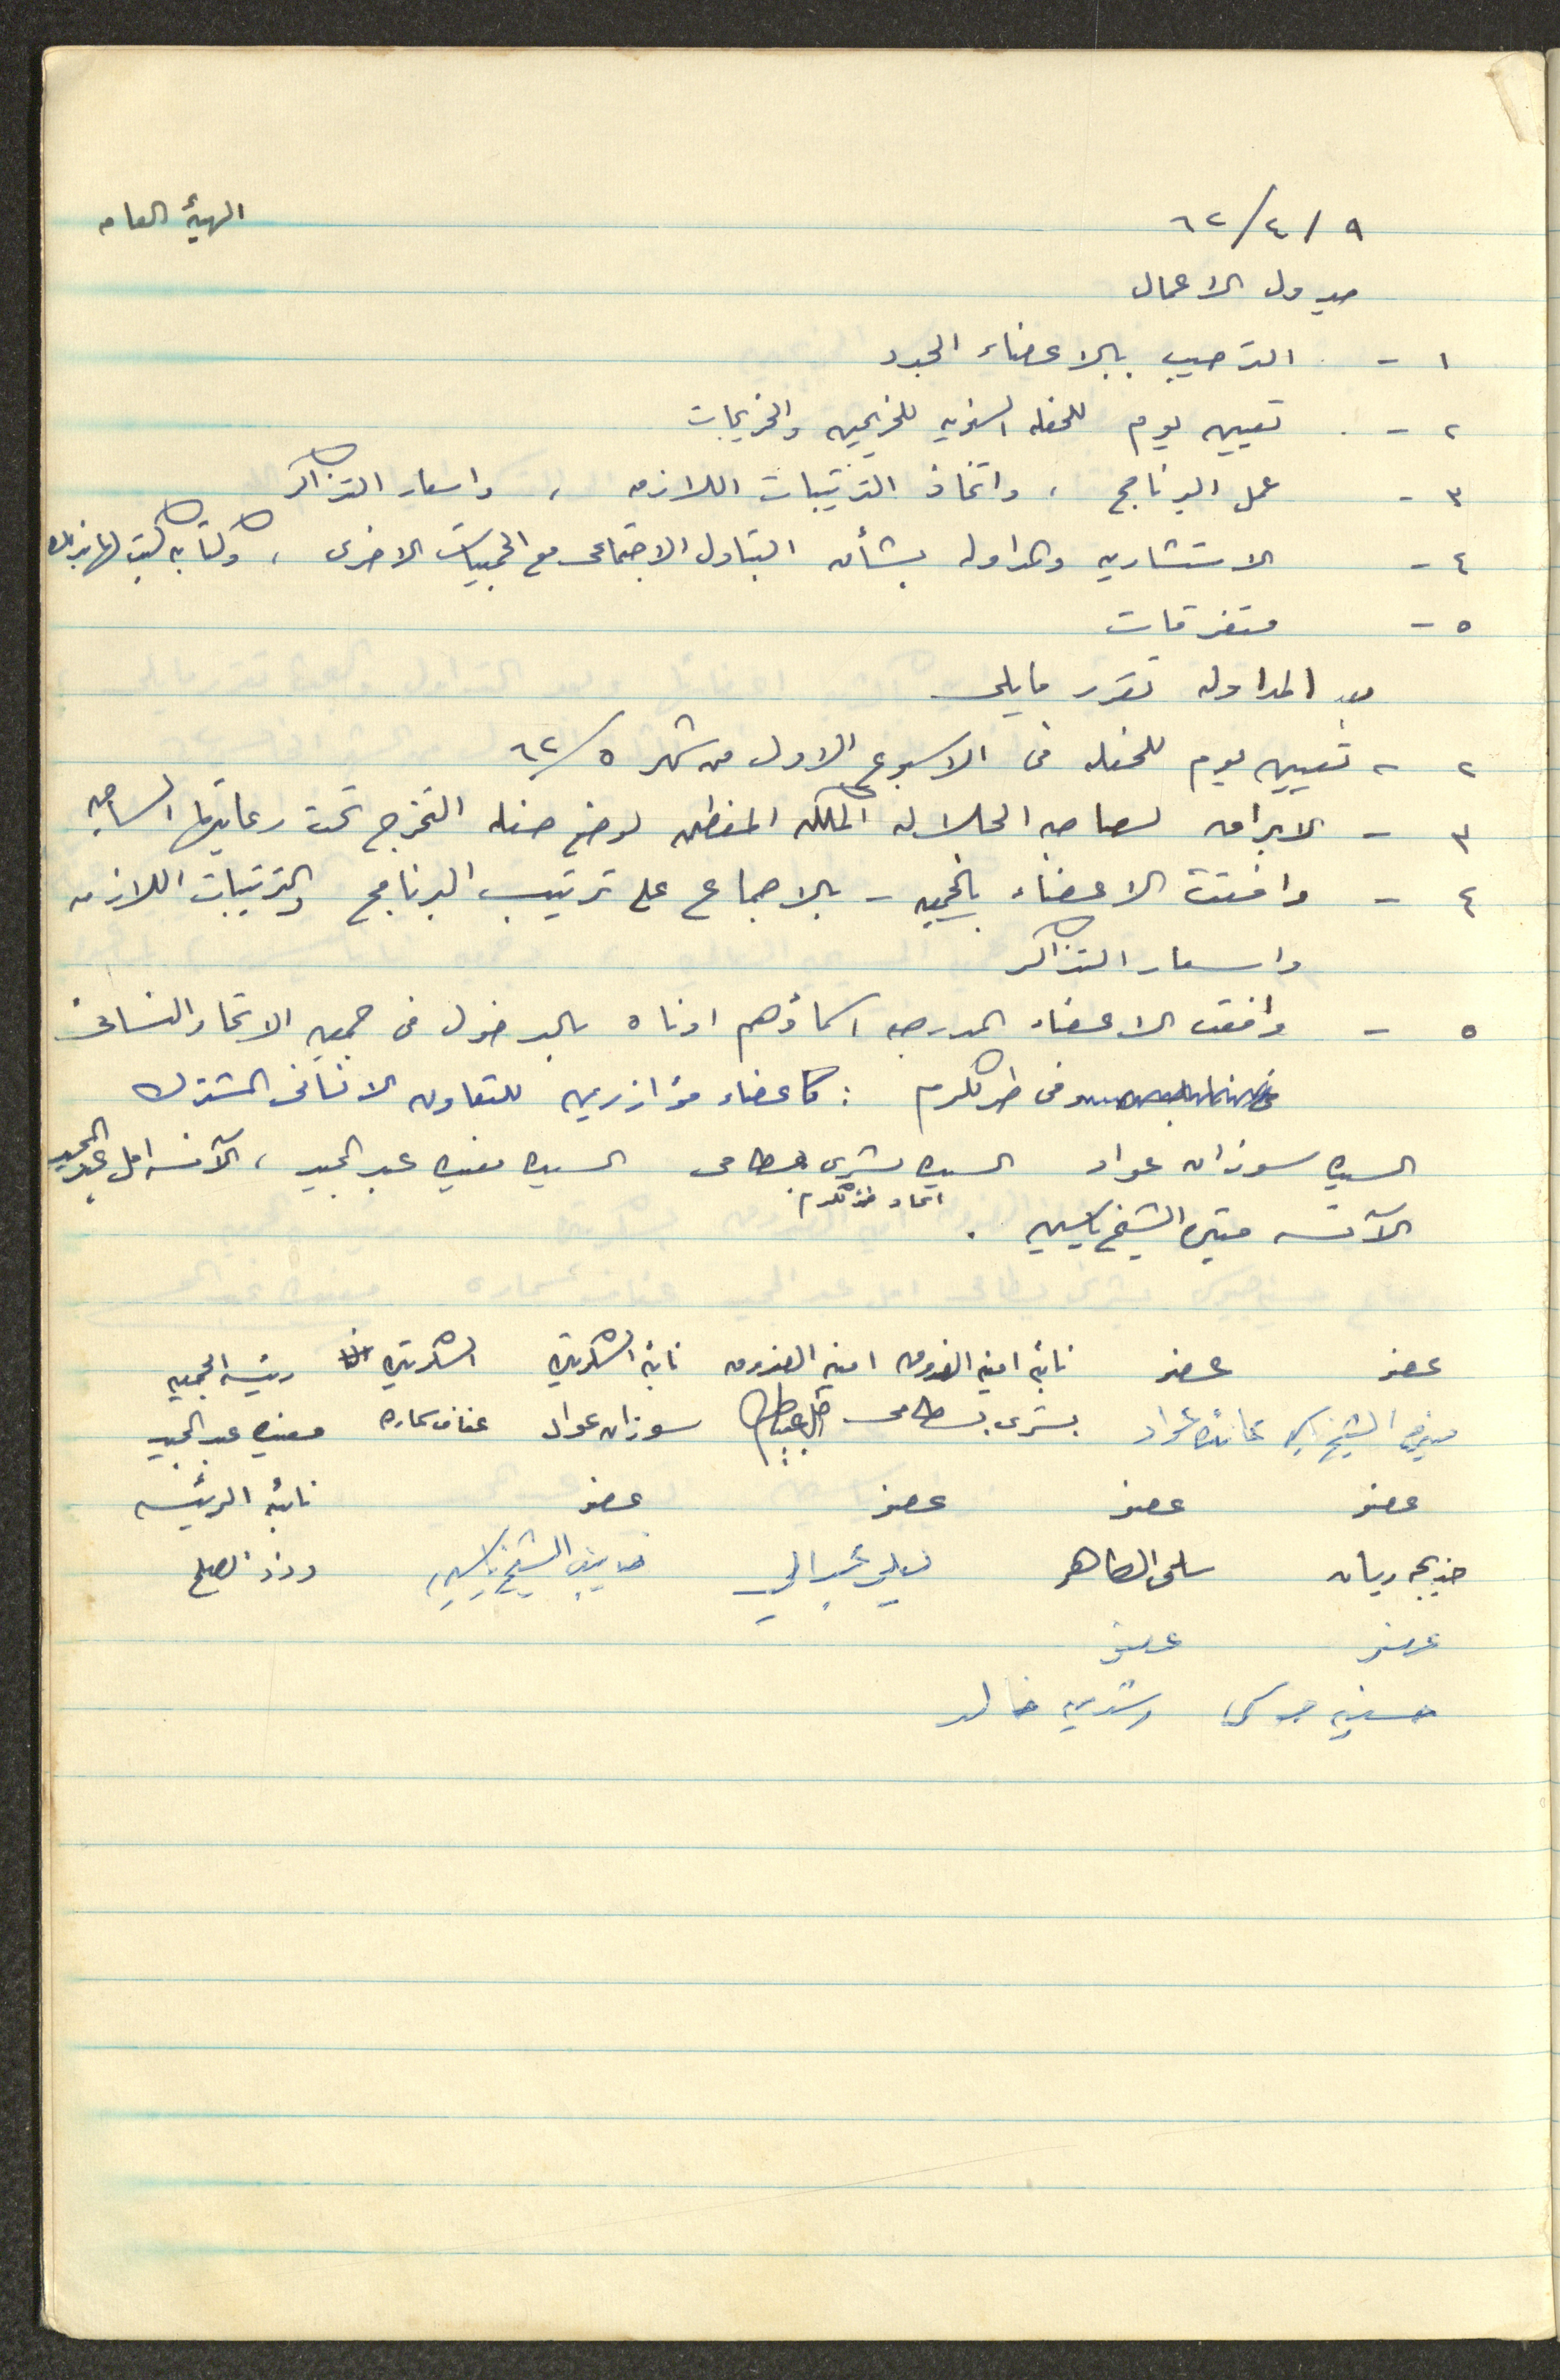 ٩/٤/٦٢ الهيئة العامه
جدول الاعمال
١ - الترحيب بالاعضاء الجدد
٢ - تعيين يوم للحفله السنويه للخريجين والخريجات
٣ - عمل البرنامج ، واتخاذ الترتيبات اللازمه ، واسعار التذاكر
٤ - الاستشاريه والمداوله بشأن التبادل الاجتماعي مع الجمعيات الاخرى ، وكتابة كتب لها بذلك
٥ - متفرقات
بعد المداوله تقرر مايلي
٢ - تعيين يوم للحفله في الاسبوع الاول من شهر ٥/٦٢
٣ - الابراق لصاحبه الجلاله الملكه المعظمه لوضع حفله التخرج تحت رعايتها الساميه
٤ - وافقت الاعضاء بالجمعيه - بالاجماع على ترتيب البرنامج والترتيبات اللازمه
واسعار التذاكر
٥ - وافقت الاعضاء المدرجه اسماؤهم ادناه بالدخول في جمعيه الاتحاد النسائي
في طولكرم : كاعضاء مؤازرين للتعاون الانساني المشترك
السيده سوزان عواد السيده بشرى بسطامي السيده مفيده عبد المجيد ، الآنسه امل عبد المجيد
اتحاد طولكرم
الآنسه ميتره الشيخ ياسين .
عضو عضو نائبة امينه الصندوق امينه الصندوق نائبة السكرتيره السكرتيره رئيسة الجمعيه
الشيخ ياسين عائده عواد بشرى بسطامي سوزان عواد عفاف سماره مفيده عبد المجيد
عضو عضو عضو عضو نائبة الرئيسه
خديجه ريان سلمى الطاهر ليلى الشيخ ياسين
عضو عضو
رشديه خالد